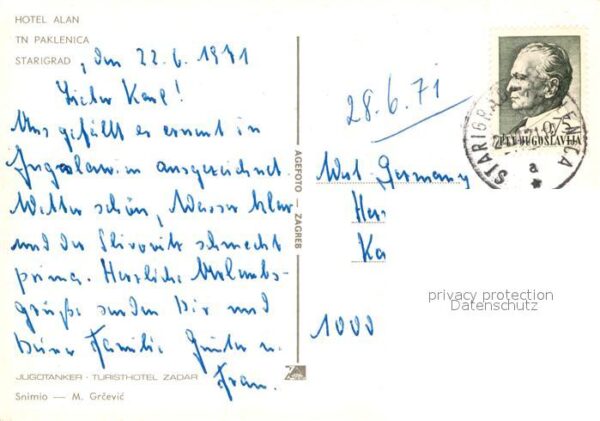 HOTEL ALAN
TN PAKLENICA
STARIGRAD, den 22.6.1971
Lieber Karl!
Uns gefällt es erneut in
Jugoslawien ausgezeichnet.
Wetter schön, Wasser klar
und der Slivovitz schmeckt
prima. Herzliche Urlaubs-
grüße senden Dir und
Deiner Familie Günter u.
Frau.
JUGOTANKER - TURISTHOTEL ZADAR
Snimio — M. Grčević
AGEFOTO — ZAGREB
28.6.71
0,75
JUGOSLAVIJA
STARIGRAD
a
West Germany
Her
Ka
1000
privacy protection
Datenschutz